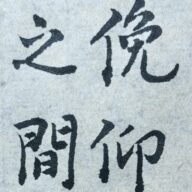 俛仰
之間